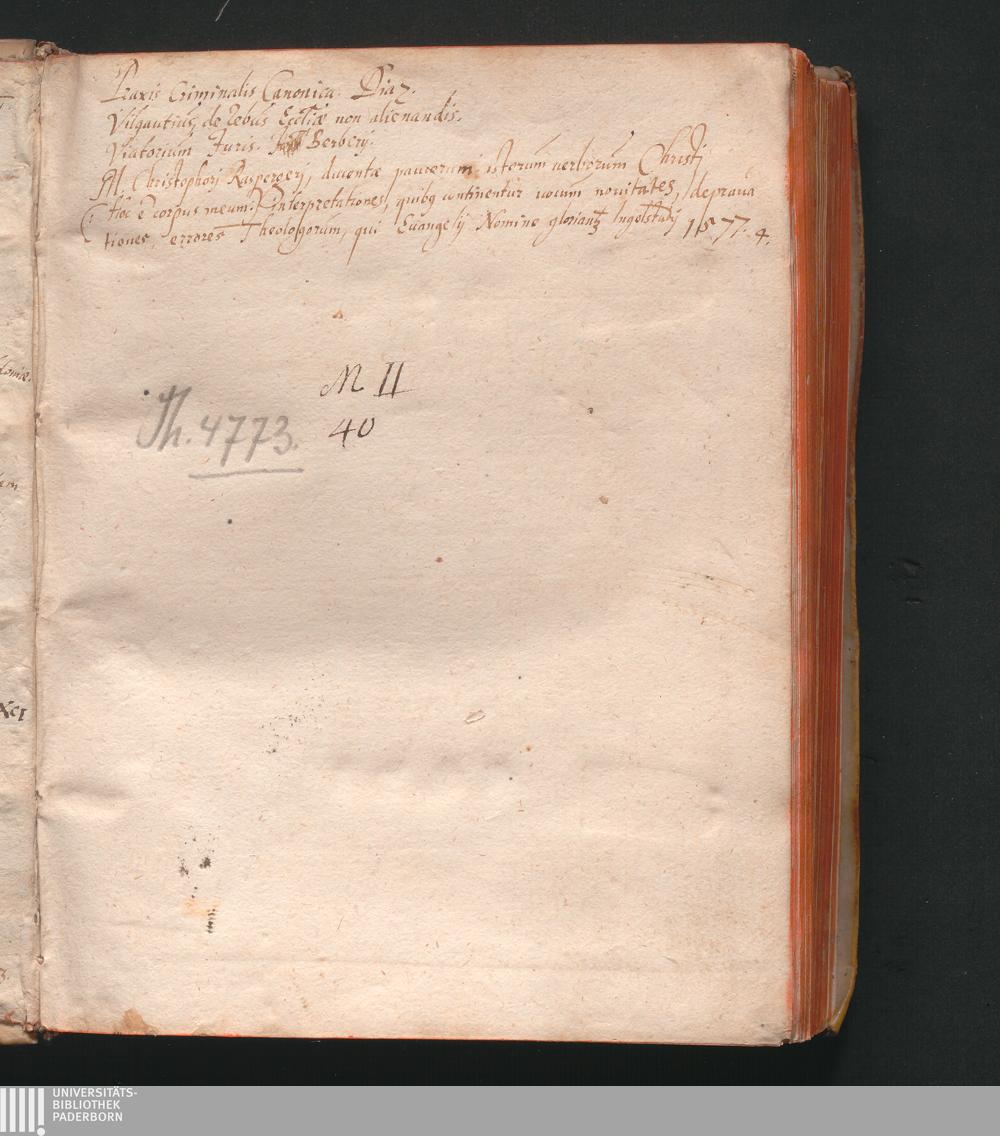 Praxis Criminalis Canonica. Diaz.
Vilgautius, de rebus Eccłiæ non alienandis.
Viatorium Juris. Berberij.
M. Christophori Raspergeri, ducentæ paucorum istorum verborum Christi
(: Hoc ē corpus meum :) interpretationes, quibq continentur vocum novitates, deprava
tiones, errores Theologorum, qui Euangelij Nomine gloriant Ingolstadij 1577. 4.
M II
Th. 4773. 40
XCI
3.
UNIVERSITÄTS-
BIBLIOTHEK
PADERBORN